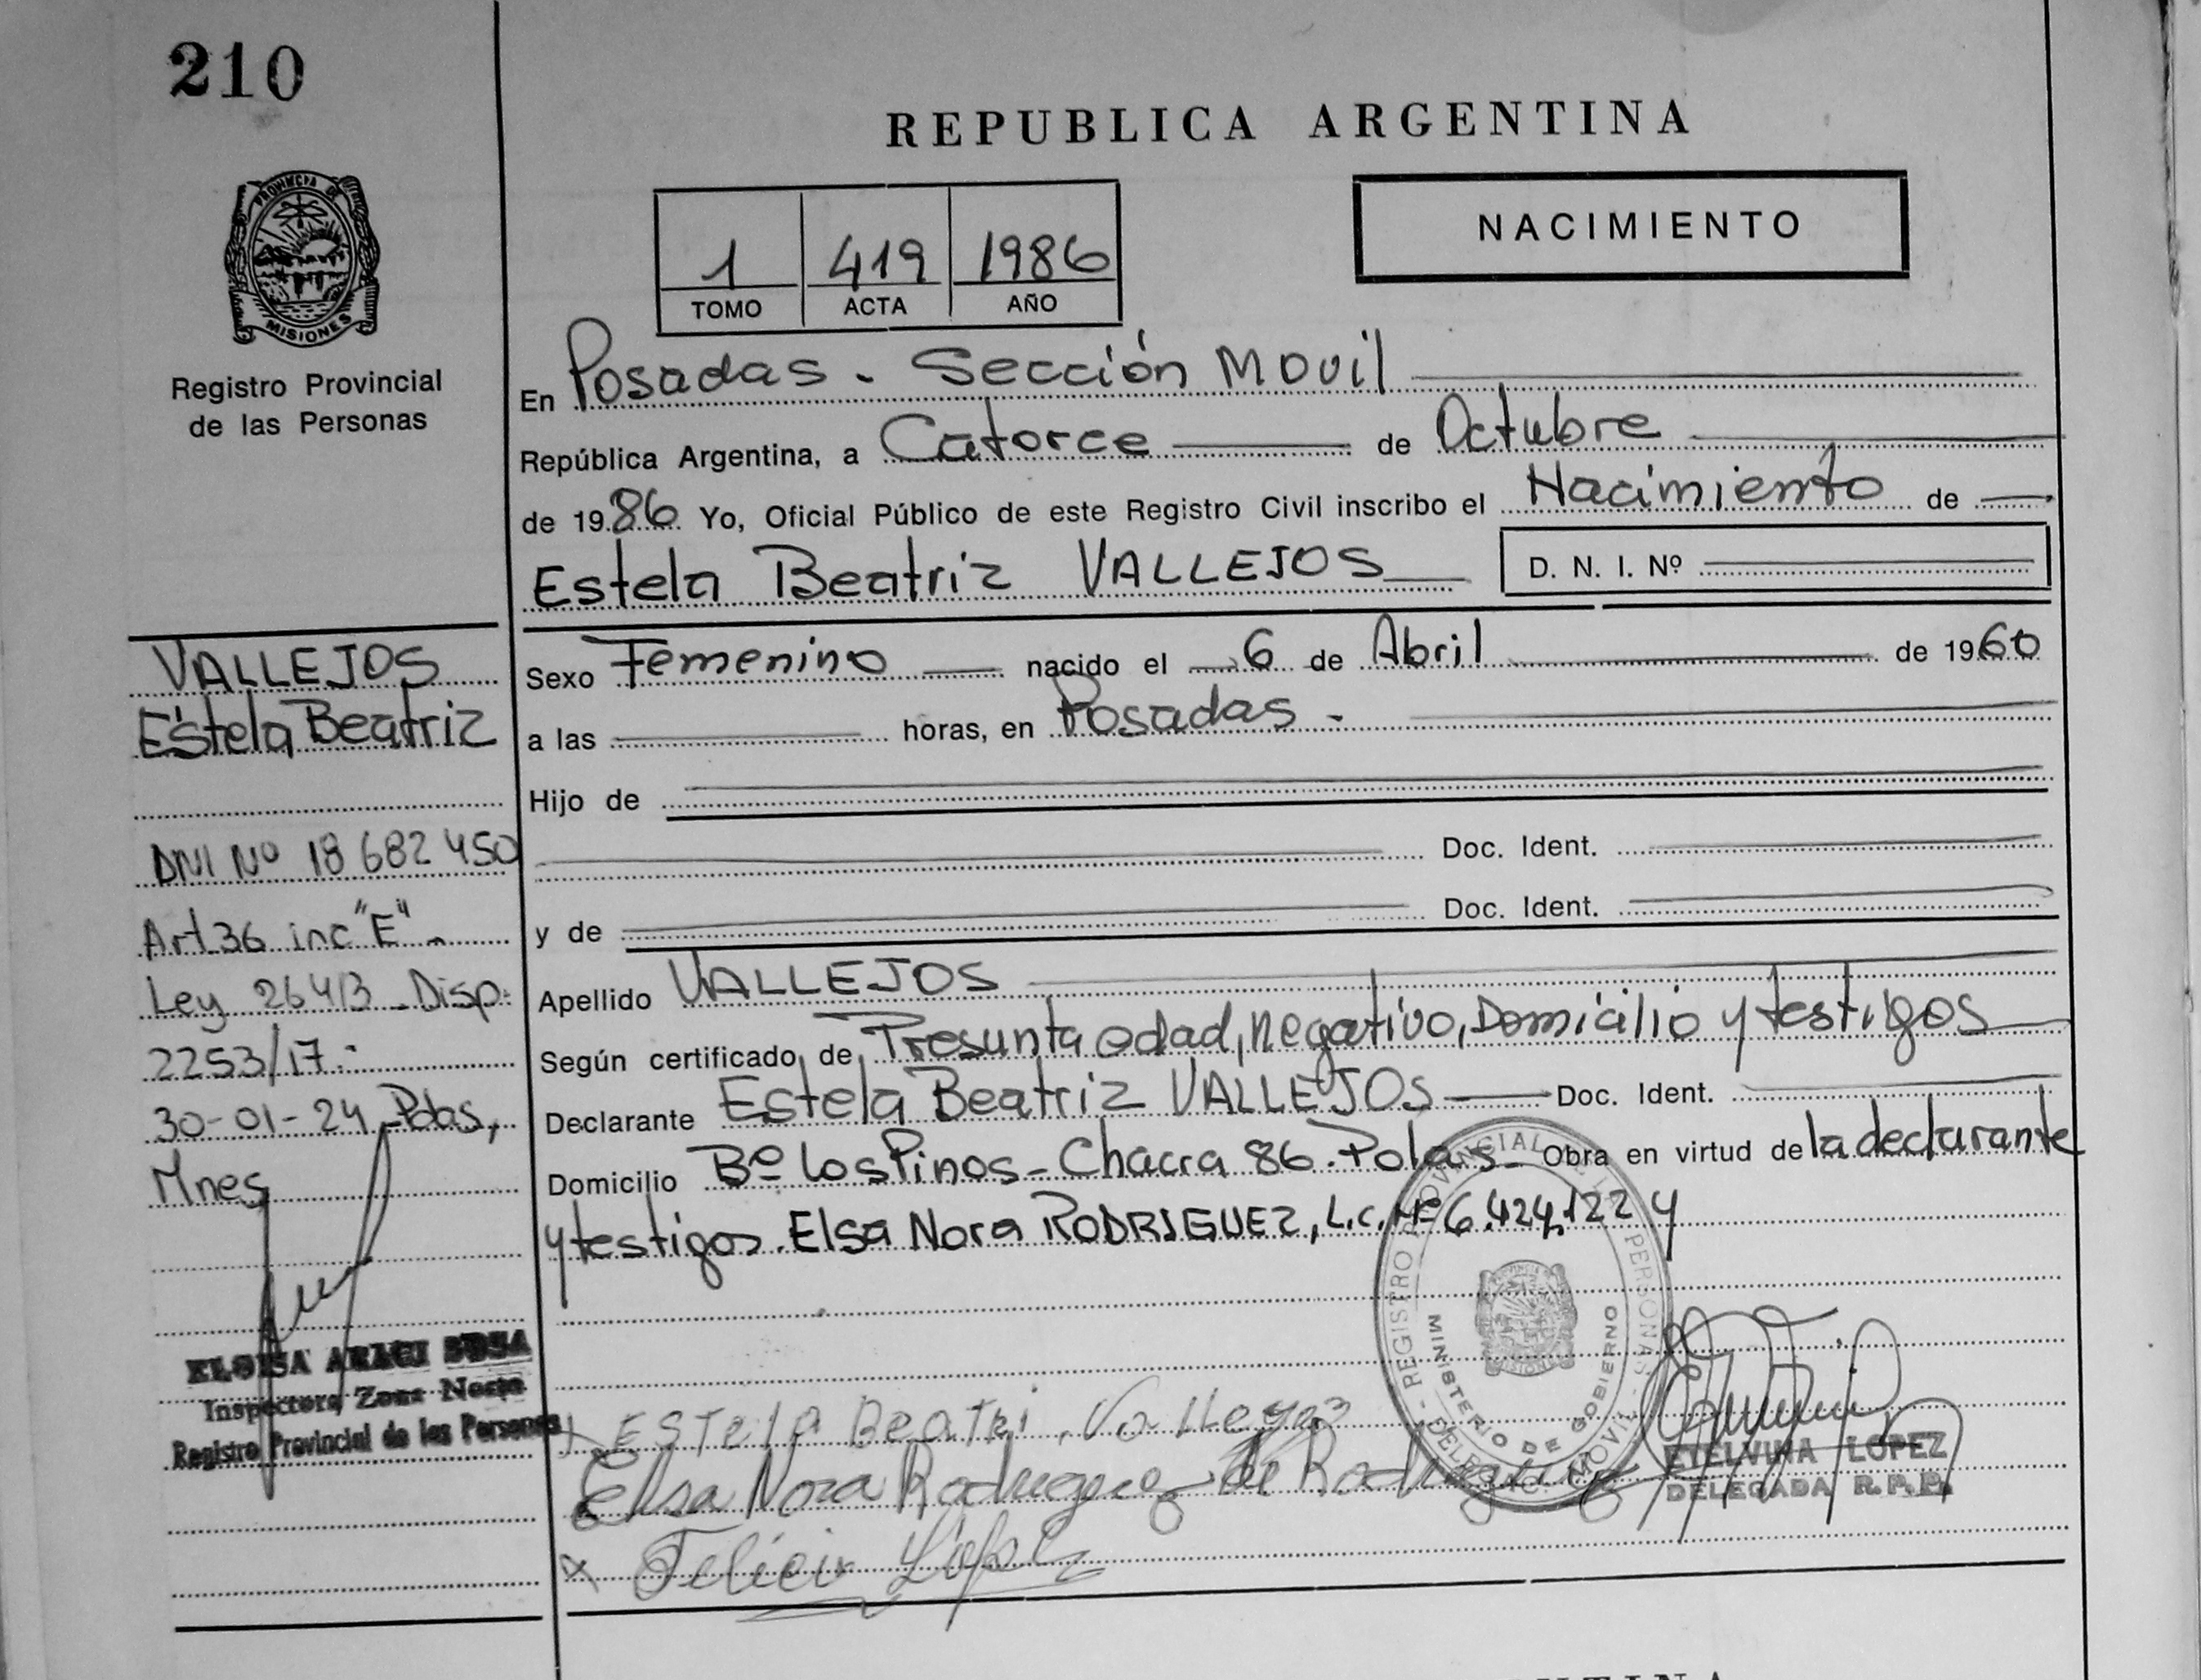 210
REPUBLICA ARGENTINA
PROVINCIA DE
MISIONES
Registro Provincial
de las Personas
1 419 1986
TOMO ACTA AÑO
NACIMIENTO
En Posadas - Sección Movil
República Argentina, a Catorce de Octubre
de 1986 Yo, Oficial Público de este Registro Civil inscribo el Nacimiento de
Estela Beatriz VALLEJOS D. N. I. Nº
VALLEJOS
Estela Beatriz
DNI Nº 18 682 450
Art 36 inc "E" -
Ley 26413 - Disp:
2253/17.-
30-01-24 Pdas,
Mnes
ELOISA ARACI SOSA
Inspectora Zona Norte
Registro Provincial de las Personas
Sexo Femenino nacido el 6 de Abril de 1960
a las horas, en Posadas -
Hijo de
Doc. Ident.
y de Doc. Ident.
Apellido VALLEJOS
Según certificado de Presunta edad, negativo, Domicilio y testigos
Declarante Estela Beatriz VALLEJOS Doc. Ident.
Domicilio Bº los Pinos - Chacra 86. Pdas - Obra en virtud de la declarante
y testigos. Elsa Nora RODRIGUEZ, L.c. Nº 6.424.122 y
REGISTRO PROVINCIAL DE LAS PERSONAS - DELEGAC. MOVIL -
MINISTERIO DE GOBIERNO
ESTELA Beatri Vallejos
Elsa Nora Rodriguez de Rodriguez
ETELVINA LOPEZ
DELEGADA R.P.P.
x Felicia López